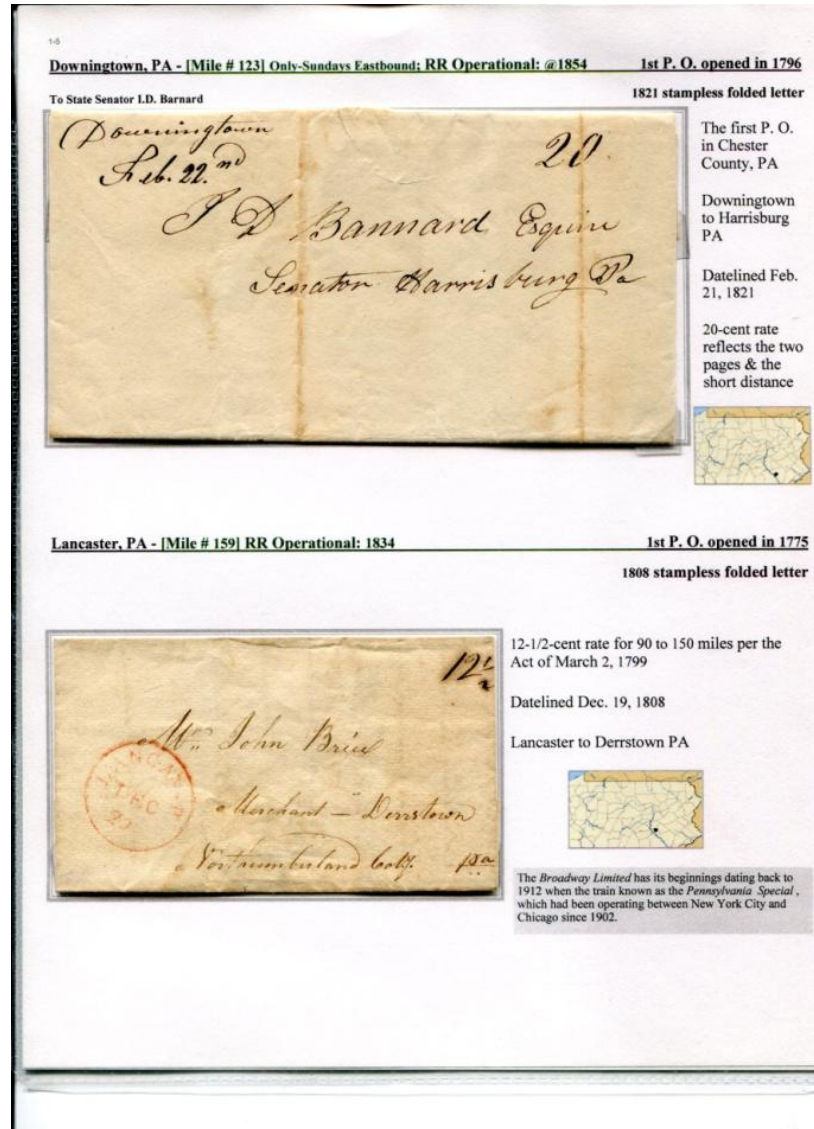 1-5
Downingtown, PA - [Mile # 123] Only-Sundays Eastbound; RR Operational: @1854 1st P. O. opened in 1796
To State Senator I.D. Barnard 1821 stampless folded letter
Downingtown
Feb. 22.nd
20
J D Bannard Esquire
Senator Harrisburg Pa
The first P. O.
in Chester
County, PA
Downingtown
to Harrisburg
PA
Datelined Feb.
21, 1821
20-cent rate
reflects the two
pages & the
short distance
Lancaster, PA - [Mile # 159] RR Operational: 1834 1st P. O. opened in 1775
1808 stampless folded letter
12 1/2
Mr. John Brice
Merchant — Derrstown
Northumberland Coty. Pa
LANCASTER
DEC
20
12-1/2-cent rate for 90 to 150 miles per the
Act of March 2, 1799
Datelined Dec. 19, 1808
Lancaster to Derrstown PA
The Broadway Limited has its beginnings dating back to
1912 when the train known as the Pennsylvania Special ,
which had been operating between New York City and
Chicago since 1902.